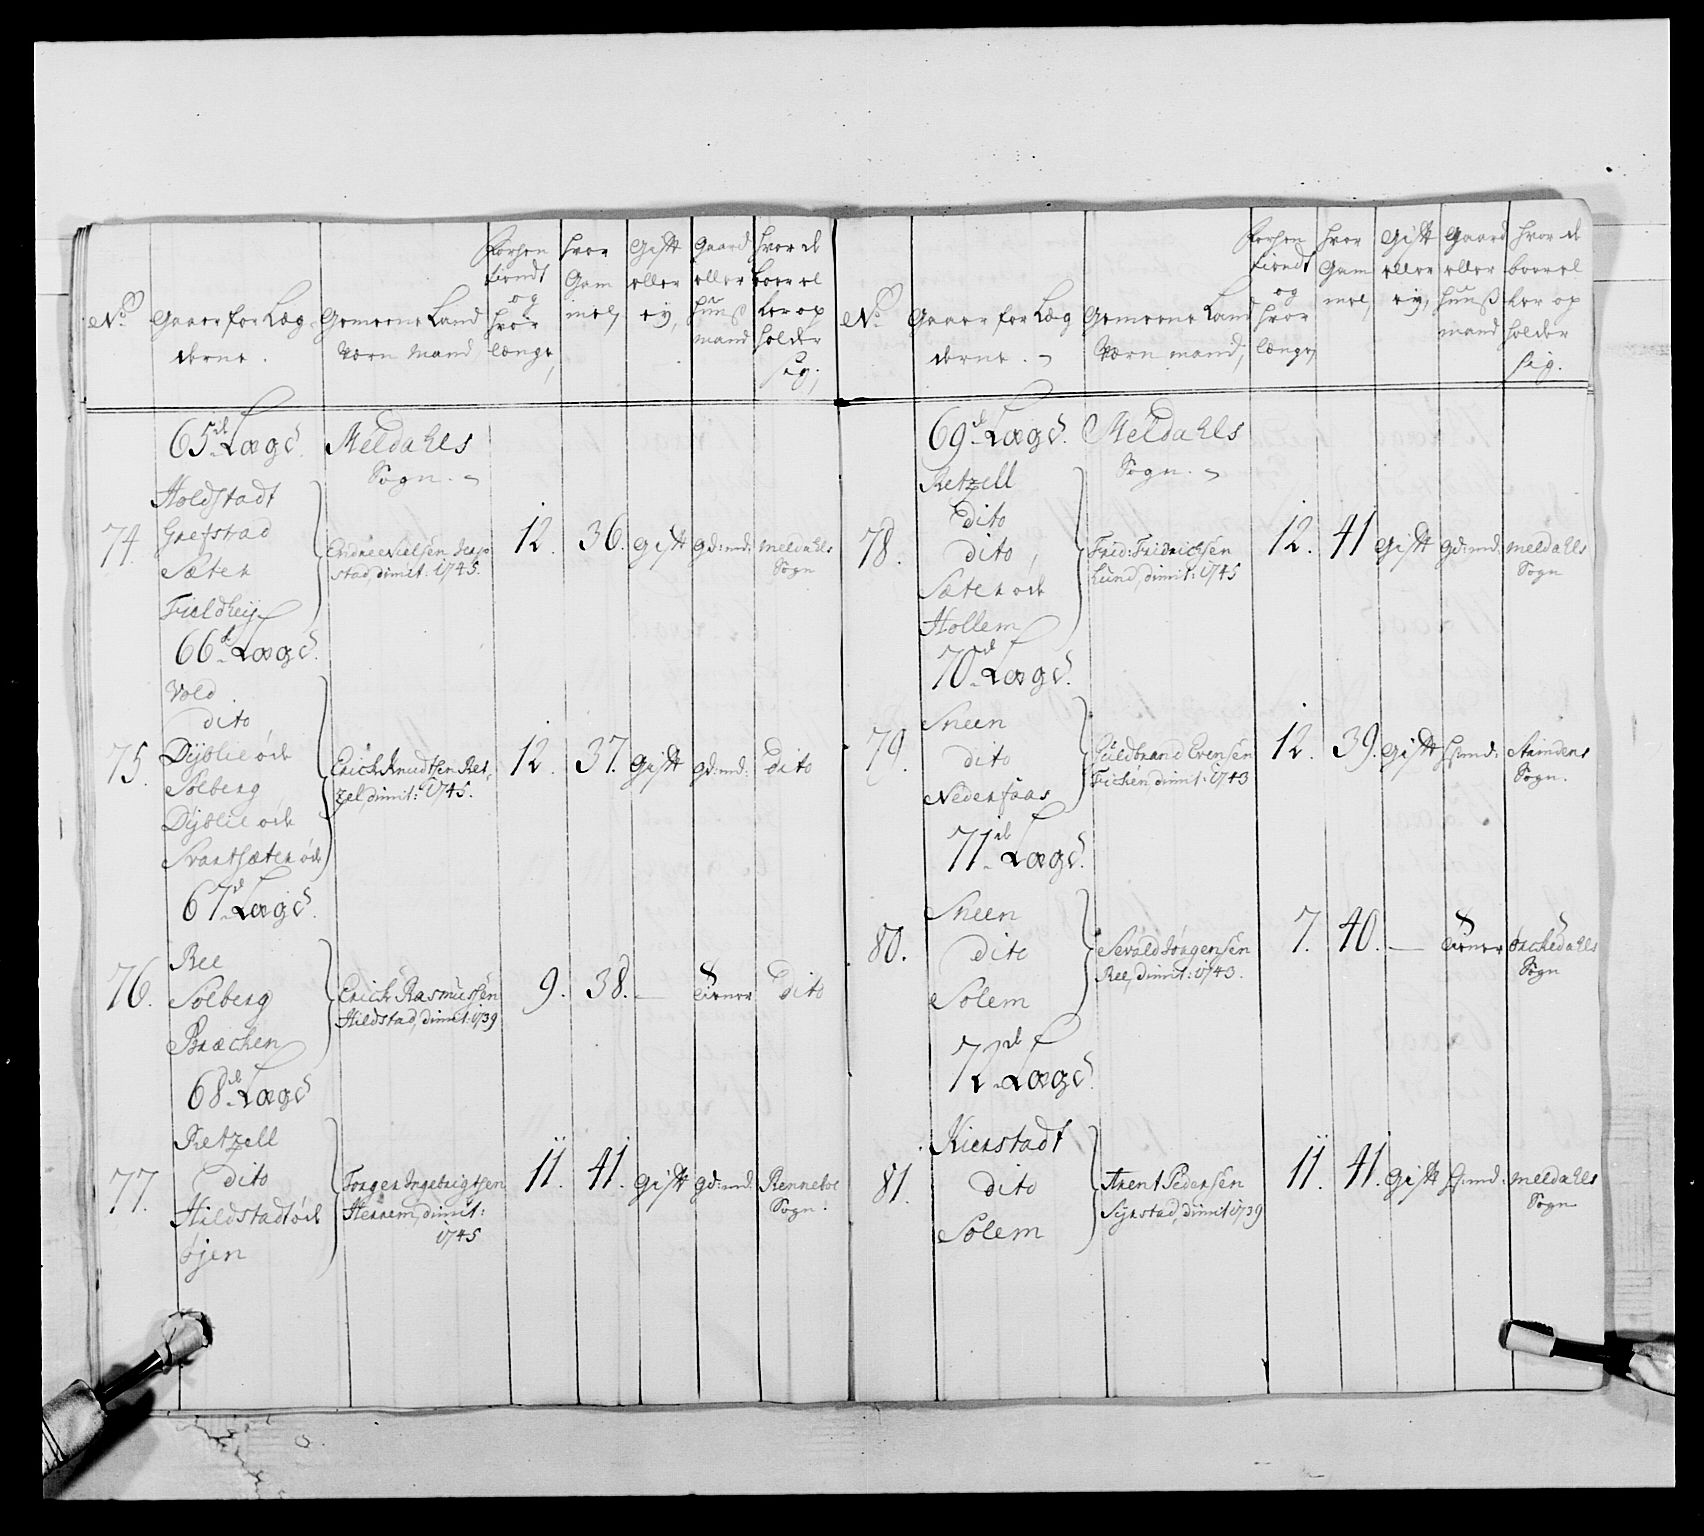 No.
Gaarer for Læg
derne.
Gemeene Land
værn mand
Forhen
tiendt
og
hvor
længe,
hvor
Gam
mel,
Gift
eller
ey,
Gaard
eller
huuß
mand
hvor de
boer el
ler op
holder
sig,
65de Lægd. Meldahls
Sogn.
74.
Holdstadt
Grefstad
Sæter
Fieldheij
Endre Nielsen
stad, dimit: 1745.
12. 36. Gift gd:md: Meldahls
Sogn
66de Lægd.
75.
Vold
dito
Dÿblie øde
Solberg
Dÿblie øde
Svartsæter øde
Erich Knudtsen Ret,
zel, dimit: 1745.
12. 37. Gift gd:md: Dito
67de Lægd.
76.
Ree
Solberg
Bræchen
Erich Rasmussen
Hildstad, dimit: 1739
9. 38. — tiener Dito
68de Lægd
77.
Retzell
dito
Hildstadt øde
øjen
Torger Ingebrigtsen
Herrem, dimit:
1745
11. 41. Gift gd:md: Renneboe
Sogn.
No.
Gaarer for Læg
derne.
Gemeene Land
værn mand,
Forhen
tiendt
og
hvor
længe,
hvor
Gam
mel,
Gift
eller
ey,
Gaard
eller
huuß
mand
hvor de
boer el
ler op
holder
sig.
69de Lægd. Meldahls
Sogn.
78.
Retzell
Dito
dito
Sæter øde
Hollem
Frid: Fridrichsen
Lund, dimit: 1745
12. 41 Gift gd:md: Meldahls
Sogn
70de Lægd.
79.
Sneen
dito
Nederfaas
Guldbrand Evensen
dimit: 1743
12. 39. Gift hs:md:
Sogn.
71de Lægd.
80.
Sneen
dito
Solem
Sevald Jørgensen
Ree, dimit: 1743.
7. 40. — tiener Orchedahls
Sogn
72de Lægd.
81.
Kierstadt
dito
Solem
Arent Pedersen
Sÿrstad, dimit 1739
11. 41. Gift hs:md: Meldahls
Sogn